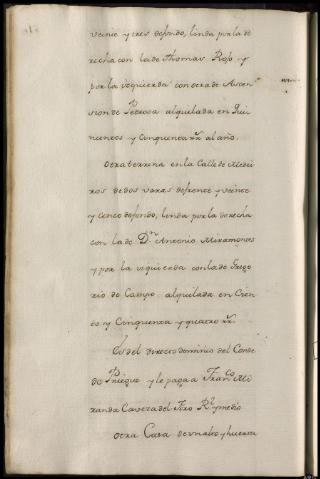 veinte y tres defondo, linda por la de
recha con la de Thomas Roso y
por la izquierda con otra de Ascen
sion de Pedrosa alquilada en Qui
nientos y Cinquenta rr. al año.
Otra terrena en la Calle de Mesti
ros de dos varas defrente y veinte
y Cinco defondo, linda por la derecha
con la de Dn. Antonio Miramontes
y por la izquierda con la de Grego
rio de Campo alquilada en Cien
to y Cinquenta y quatro rr.
Es del directo dominio del Conde
de Priegue y le paga a Franco. Mi
randa Cavera del Foro Rl. y medio
Otra Casa de un alto y huerta